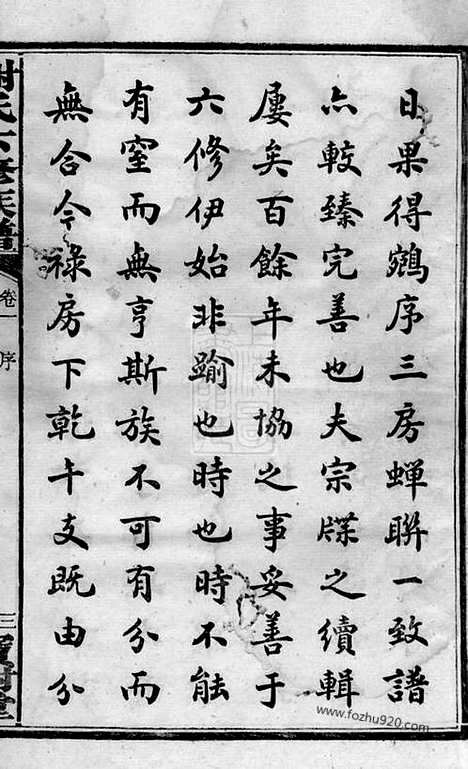 日果得鵷序三房蟬聯一致譜
亦較臻完善也夫宗牒之續輯
屢矣百餘年未協之事妥善于
六修伊始非踰也時也時不能
有窒而無亨斯族不可有分而
無合今祿房下乾午支既由分
謝氏六修族譜
卷一
序
三
寶樹堂
www.fozhu920.com